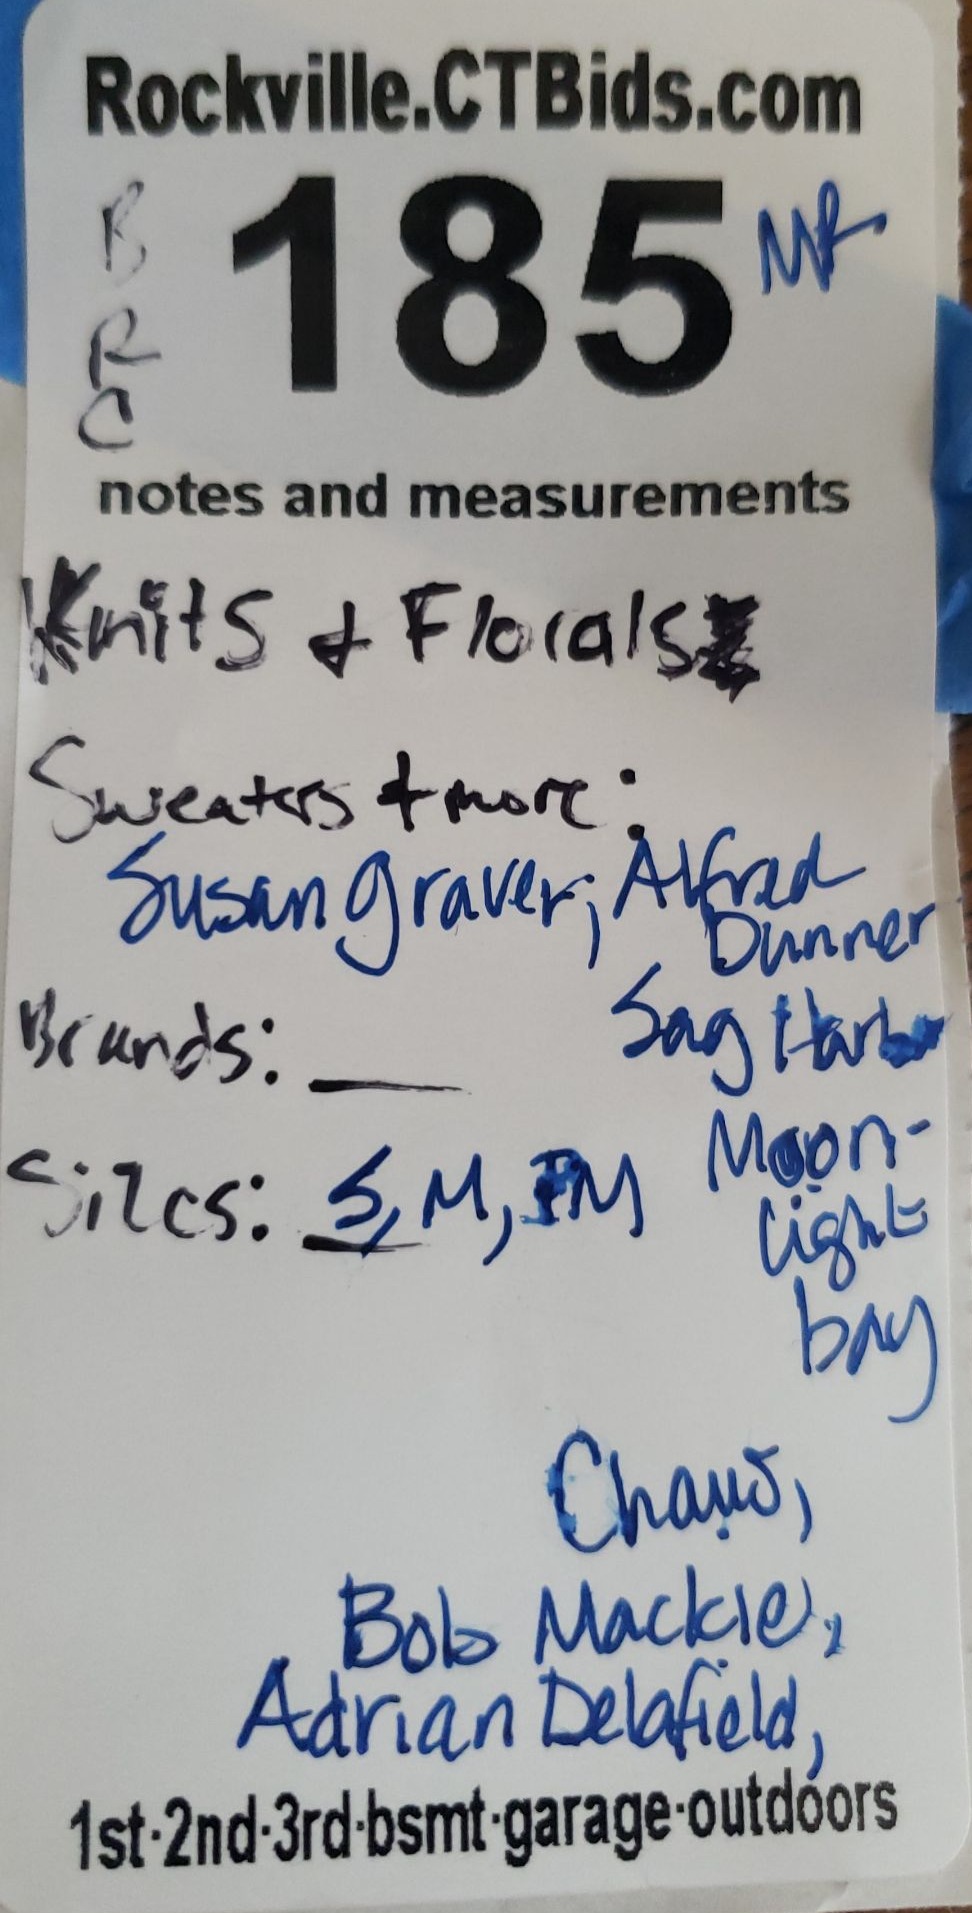 Rockville.CTBids.com
B
R
C
185
MR
notes and measurements
Knits & Florals
Sweaters & more:
Susan graver; Alfred
Dunner
Brands:
Sag Harbor
Sizes: S, M, PM
Moon-
light
bay
Chaus,
Bob Mackie,
Adrian Delafield,
1st·2nd·3rd·bsmt·garage·outdoors